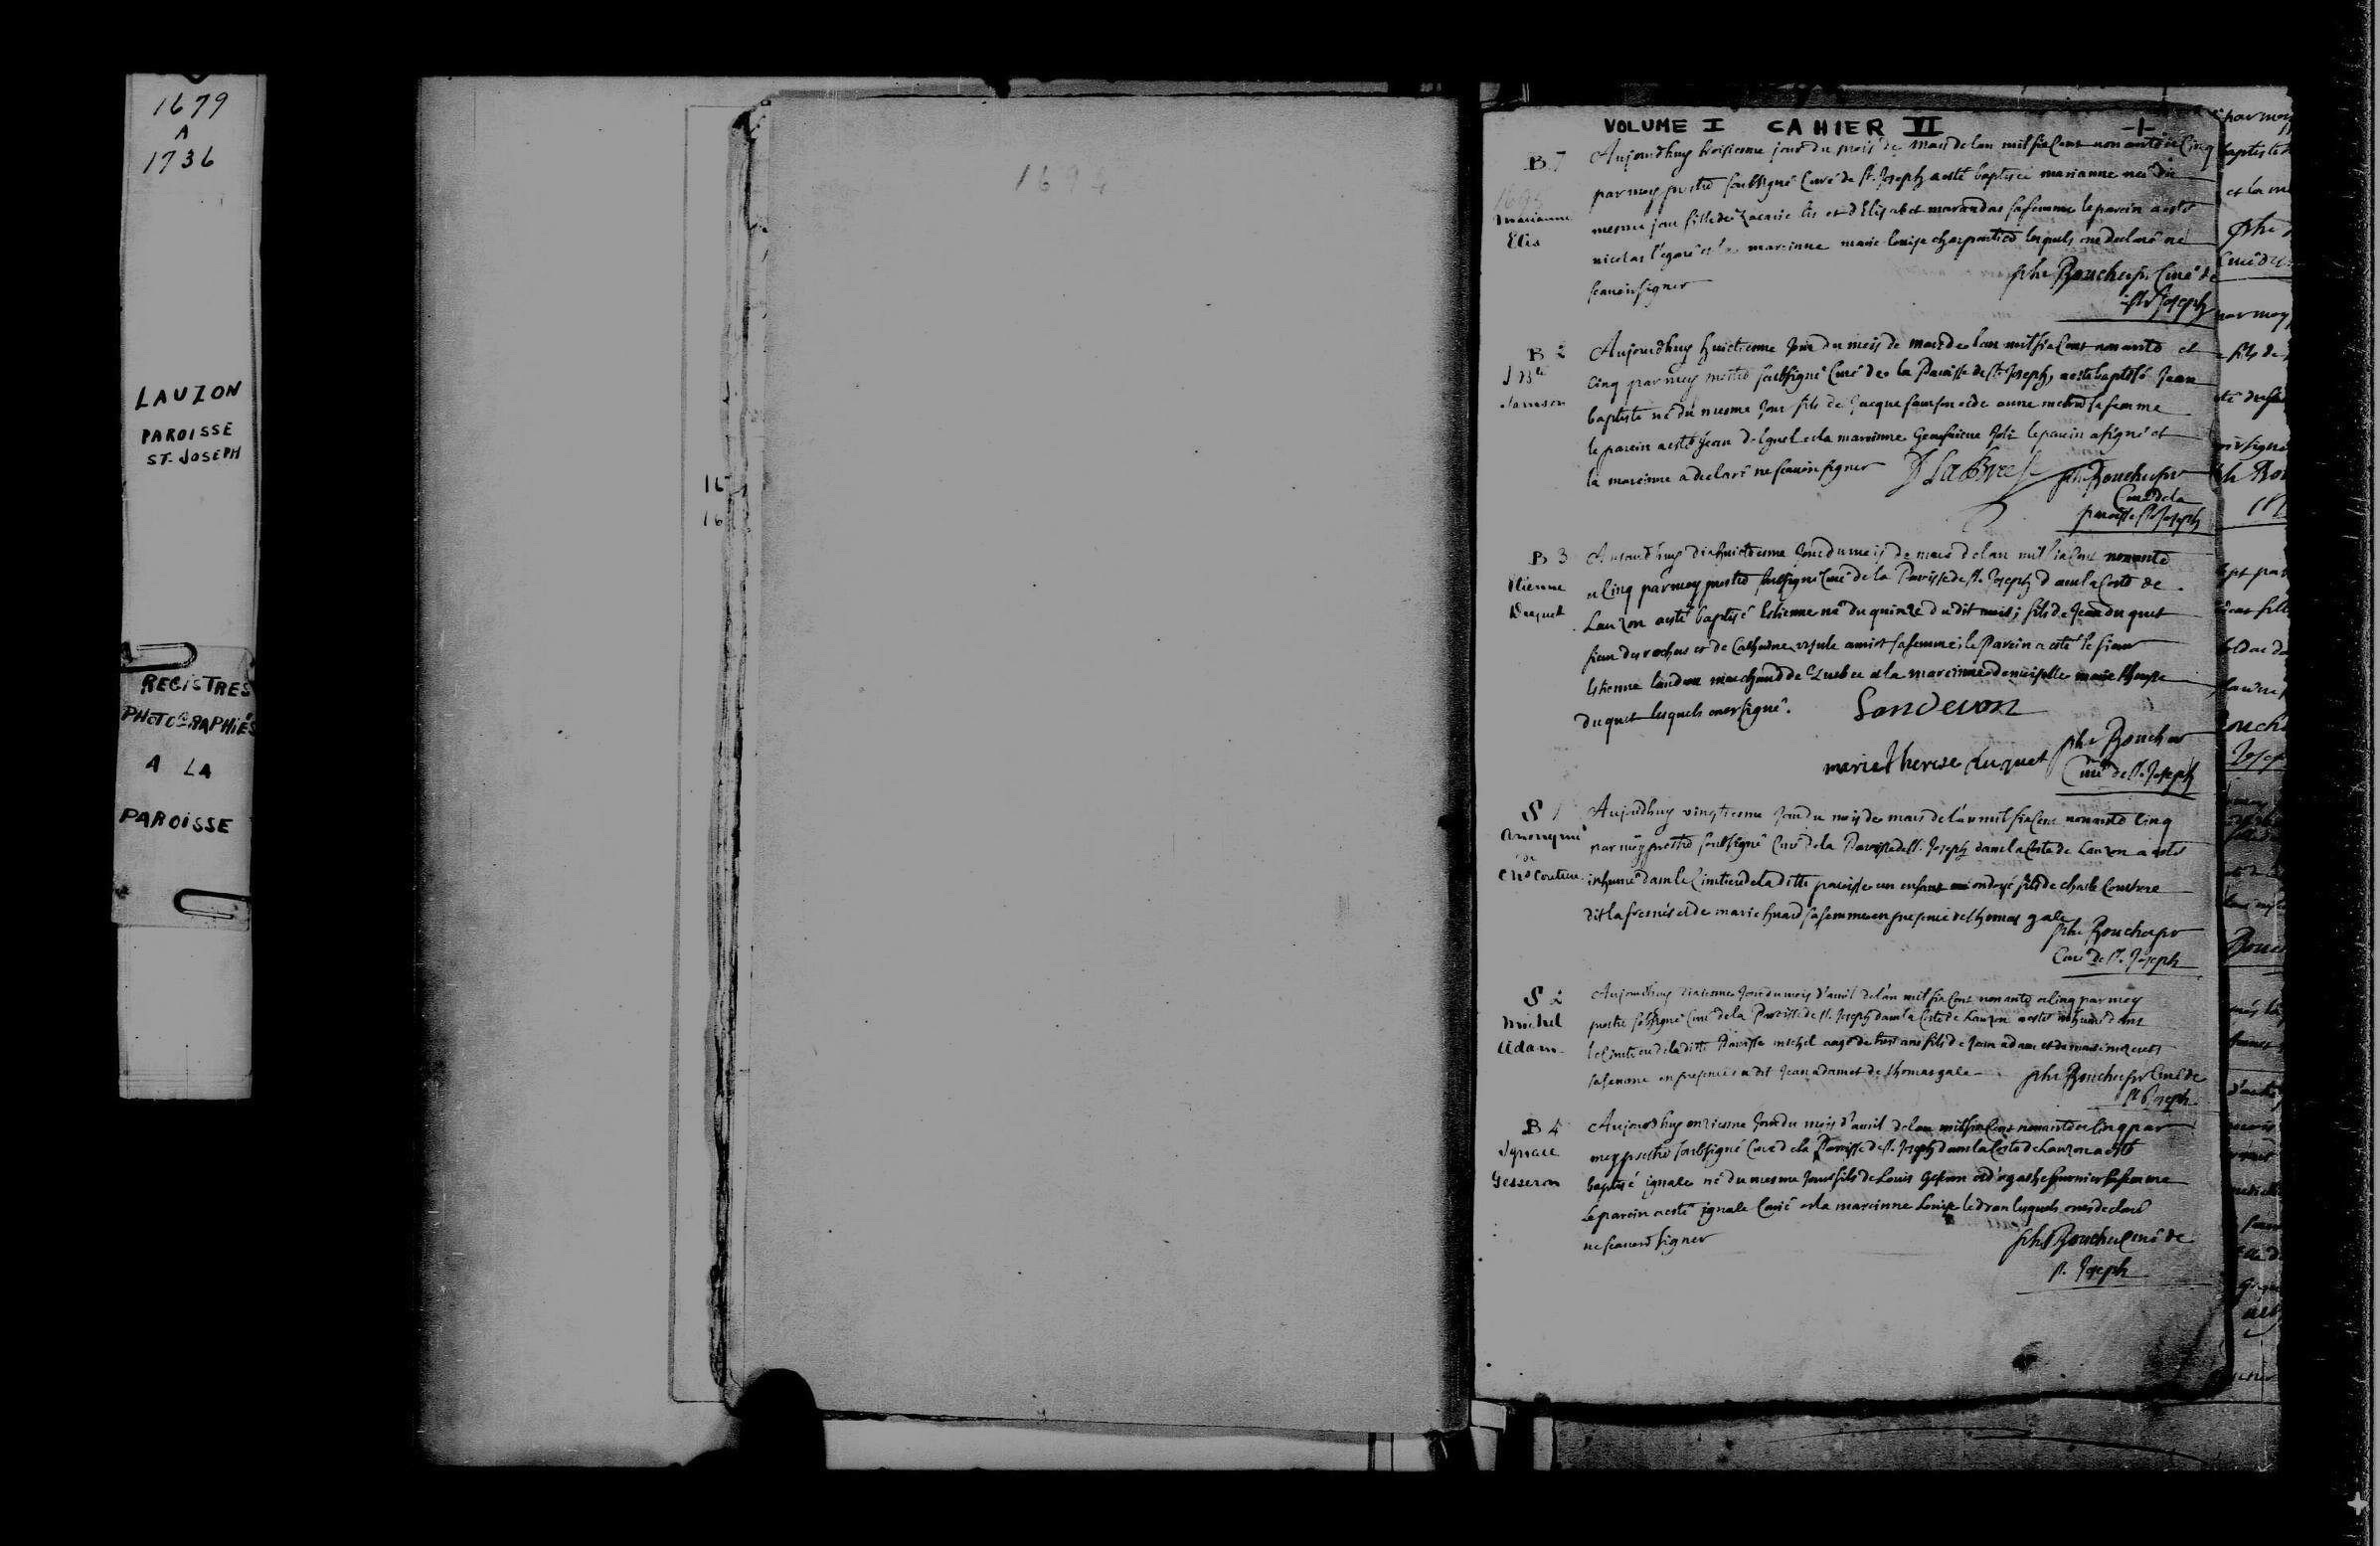 1679
A
1736
LAUZON
PAROISSE
ST. JOSEPH
REGISTRES
PHOTOGRAPHIÉS
A LA
PAROISSE
1694
16
16
VOLUME I CAHIER VI -1-
B 1
1695
Marianne
Elis
Aujourdhuy troisiesme jour du mois de mars de lan mil six cent nonante et Cinq
par moy prestre soubsigné Curé de St. Joseph a esté baptisée marianne née du
mesme jour fille de Zacarie Lis et d'Elisabet marandas sa femme le parein a esté
nicolas l'egaré et la mareinne marie louise charpentier lesquels ont declaré ne
scavoir signer
phe Boucher pr. Curé de
St Joseph
B 2
J Bte
Samson
Aujourdhuy huictiesme jour du mois de mars de lan mil six cent nonante et
Cinq par moy prestre soubsigné Curé de la Paroisse de St. Joseph, a esté baptisé Jean
baptiste né du mesme jour fils de Jacque samson et de anne metru sa femme
le parein a esté Jean et la mareinne Genefvieve le parein a signé et
la mareinne a declaré ne scavoir signer
phe Boucher pr
Curé de la
paroisse St Joseph
B 3
Etienne
Duquet
Aujourdhuy dixhuictiesme jour du mois de mars de lan mil six cent nonante
et Cinq par moy prestre soubsigné Curé de la Paroisse de St. Joseph dans la Coste de
Lauzon a esté baptisé Estienne né du quinze du dit mois; fils de Jean duquet
sieur des rochers et de Catherine ursule amiot sa femme; le Parein a esté le sieur
Estienne marchand de Quebec et la mareinne demoiselle marie therese
duquet lesquels ont signé.
Landeron
marie Therese duquet
phe Boucher
Curé de St. Joseph
S 1
anonyme
de
Chs Couture
Aujourdhuy vingtiesme jour du mois de mars de lan mil six cent nonante Cinq
par moy prestre soubsigné Curé de la Paroisse de St. Joseph dans la Coste de Lauzon a esté
inhumé dans le Cimetiere de la ditte paroisse un enfant ondoyé fils de charle Couture
dit la fresnés et de marie huard sa femme en presence de thomas gale
phe Boucher pr
Curé de St. Joseph
S 2
Michel
Adam
Aujourdhuy dixiesme jour du mois d'avril de lan mil six cent nonante et Cinq par moy
prestre sobsigné Curé de la Paroisse de St. Joseph dans la Coste de Lauzon a esté inhumé dans
le Cimetiere de la ditte Paroisse michel aagé de trois ans fils de Jean adam et de marie mezeret
sa femme en presence du dit Jean adam et de thomas gale
phe Boucher pr Curé de
St Joseph
B 4
Ignace
Gesseron
Aujourdhuy onziesme jour du mois d'avril de lan mil six cent nonante et Cinq par
moy prestre soubsigné Curé de la Paroisse de St. Joseph dans la Coste de Lauzon a esté
baptisé ignale né du mesme jour fils de Louis Geseron et d'agathe fournier sa femme
Le parein a esté ignale Carié et la mareinne Louise ledran lesquels ont declaré
ne scavoir signer
phe Boucher Curé de
St. Joseph